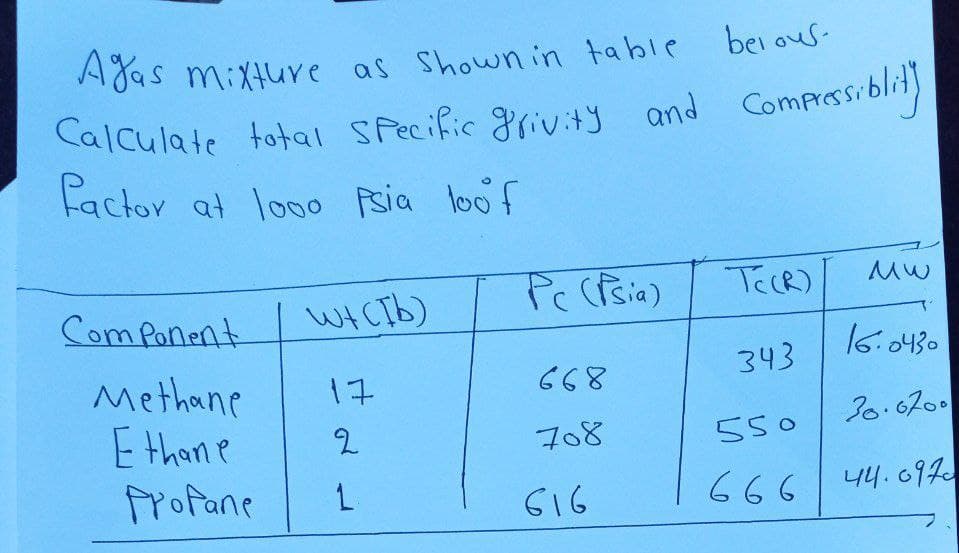 A gas mixture as shown in table belous.
Calculate total specific grivity and Compressiblity
factor at 1000 Psia 100°f
Component Wt(Ib) Pc (Psia) Tc(R) MW
Methane 17 668 343 16.0430
Ethane 2 708 550 30.0700
Propane 1 616 666 44.0970